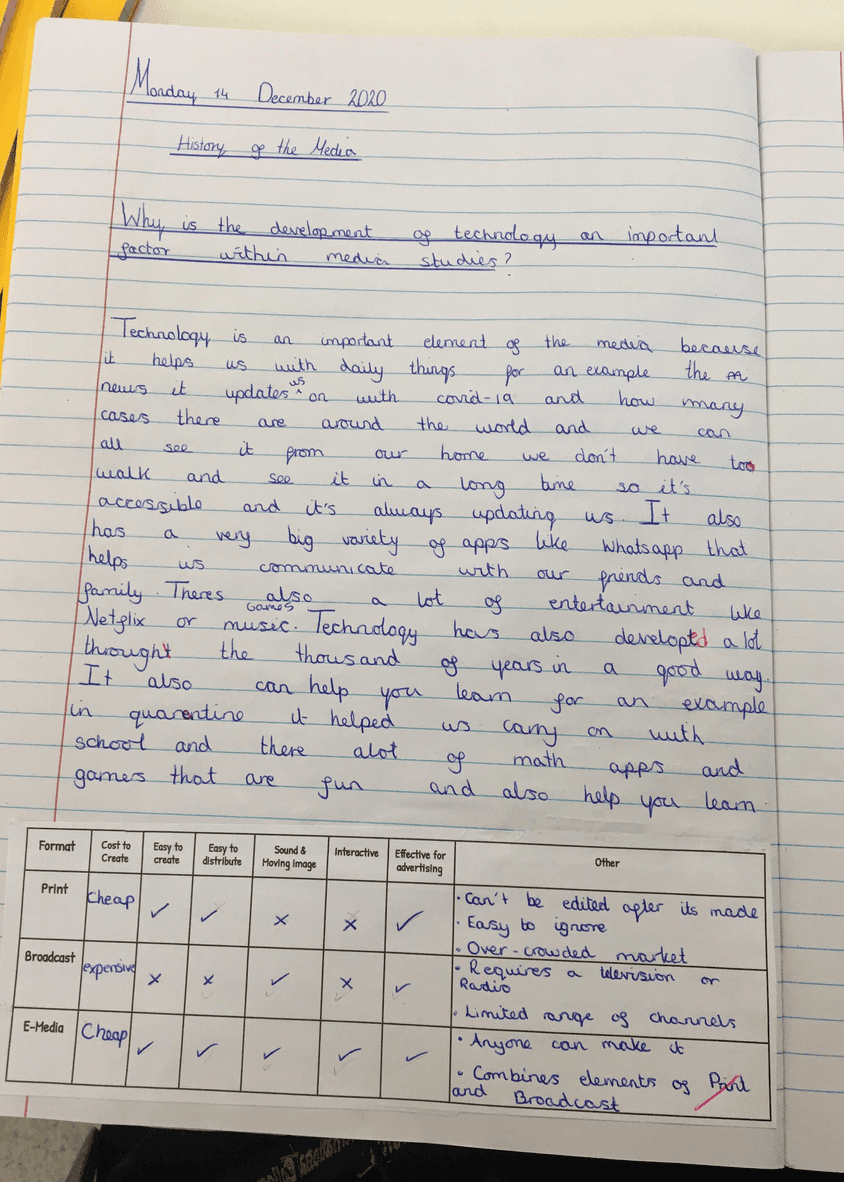 Monday 14 December 2020
History of the Media
Why is the development of technology an important
factor within media studies?
Technology is an important element of the media because
it helps us with daily things for an example the
news it updates us on with covid-19 and how many
cases there are around the world and we can
all see it from our home we don't have too
walk and see it in a long time so it's
accessible and it's always updating us. It also
has a very big variety of apps like Whatsapp that
helps us communicate with our friends and
family. Theres also a lot of entertainment like
Netflix or games music. Technology has also developed a lot
throught the thousand of years in a good way.
It also can help you learn for an example
in quarentine it helped us carry on with
school and there alot of math apps and
games that are fun and also help you learn.
Format Cost to Create Easy to create Easy to distribute Sound & Moving image Interactive Effective for advertising Other
Print Cheap ✓ ✓ × × ✓ · Can't be edited after its made
· Easy to ignore
· Over-crowded market
Broadcast expensive × × ✓ × ✓ · Requires a television or
Radio
· Limited range of channels
E-Media Cheap ✓ ✓ ✓ ✓ ✓ · Anyone can make it
· Combines elements of Print
and Broadcast